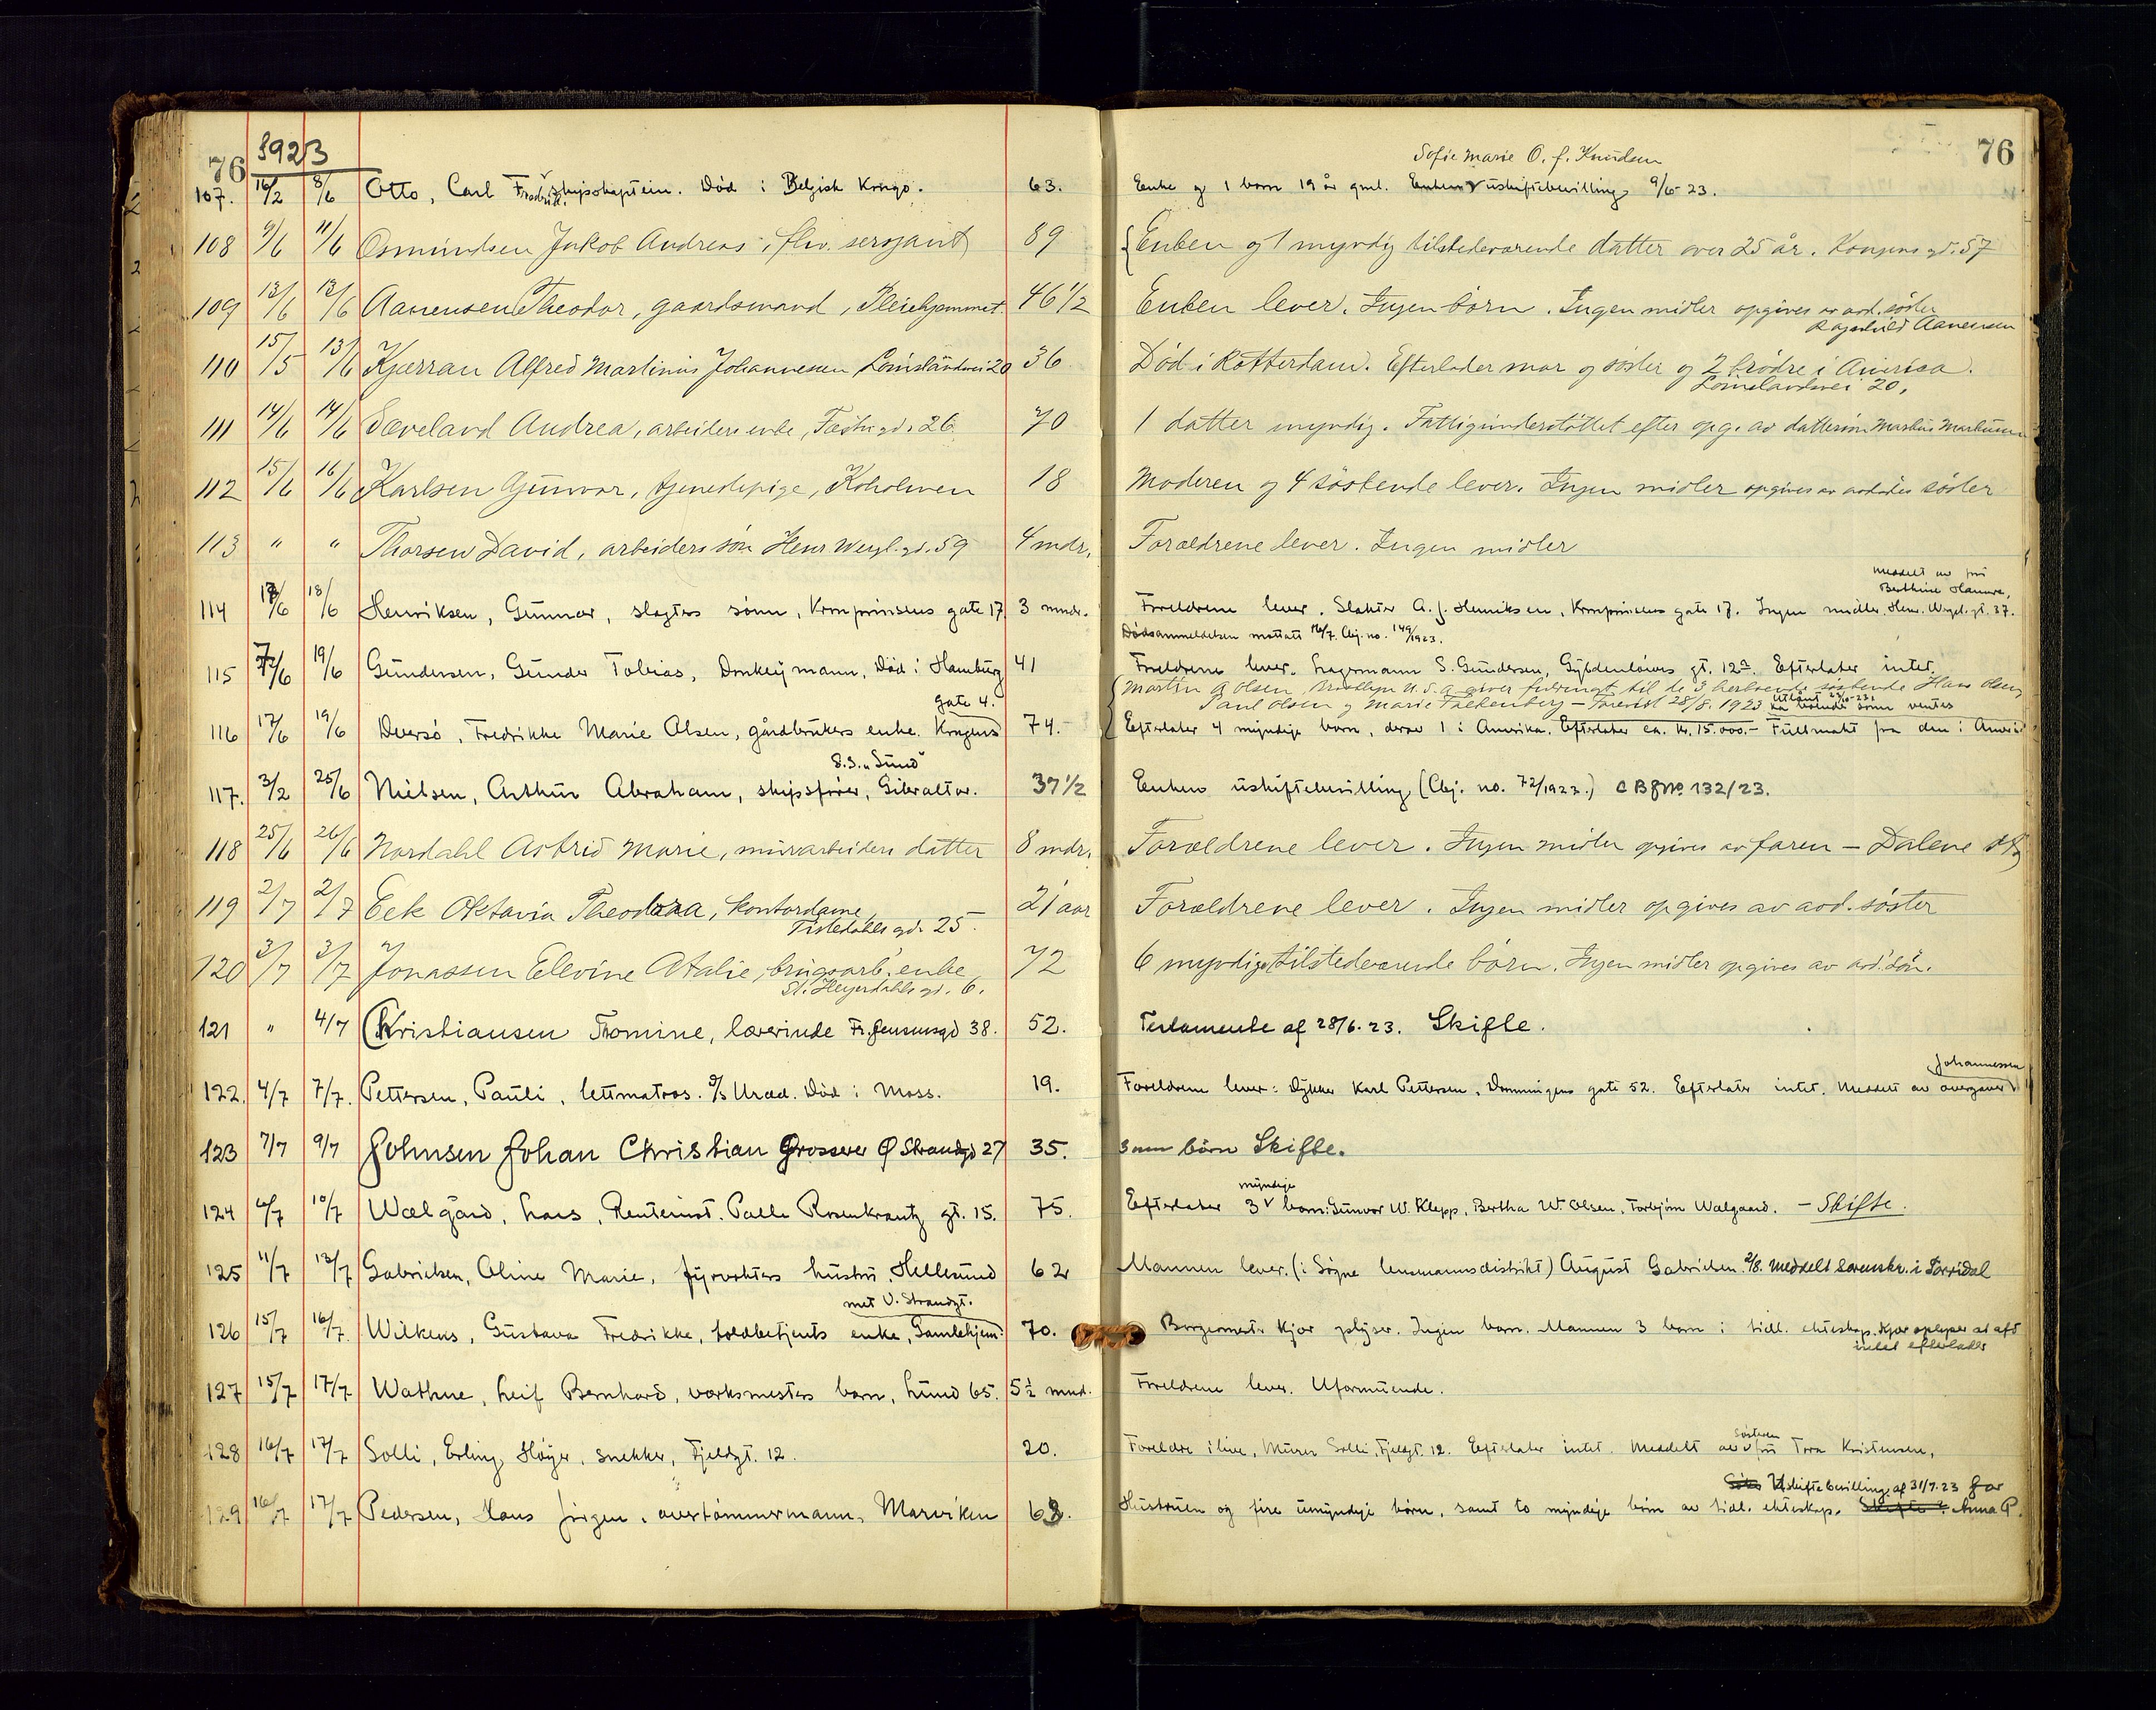 76
1923
76
Sofie Marie O. f. Knudsen
107. 16/2 8/6 Otto, Carl Fredrik. skipskaptein. Død i Belgisk Kongo. 63. Enke og 1 barn 19 år gml. Enkens uskiftebevilling 9/6-23.
108 9/6 11/6 Osmundsen Jakob Andreas, fhv. sersjant 89 Enken og 1 myndig tilstedeværende datter over 25 år. Kongens gd. 57
109 13/6 13/6 Aanensen Theodor, gaardsmand, Pleiehjemmet. 46 1/2 Enken lever. Ingen børn. Ingen midler opgives av avd. søster
Ragnhild Aanensen
110 15/5 13/6 Kjærran Alfred Martinius Johannessen Lømslandsvei 20 36 Død i Rotterdam. Efterlader mor og søster og 2 brødre i Amerika.
Lømslandsvei 20,
111 14/6 14/6 Sæveland Andrea, arbeiders enke, Fæstn.gd. 26 70 1 datter myndig. Fattigunderstøttet efter opg. av dattersøn Markus
112 15/6 16/6 Karlsen Gunvor, tjenestepige, Koholmen 18 Moderen og 4 søskende lever. Ingen midler opgives av avdødes søster
113 " " Thorsen David, arbeiders søn Henr Wergl. gd. 59 4 mdr. Forældrene lever. Ingen midler
meddelt av fru
Berthine
114 18/6 18/6 Henriksen, Gunnar, slagters sønn, Kronprinsens gate 17. 3 mndr. Foreldrene lever. Slakter A. J. Henriksen, Kronprinsens gate 17. Ingen midler. Henr. Wergel. gt. 37.
Dødsanmeldelsen mottatt 16/7. Obj. no. 149/1923.
115 19/6 Gundersen, Gunder Tobias, Donkeymann, Død i Hamburg 41 Foreldrene lever. Lagermann S. Gundersen, Gyldenløves gt. 12a. Efterlater intet.
Martin Olsen, Brooklyn U.S.A. giver fuldmagt til de 3 herboende søskende Hans Olsen,
Paul Olsen og Marie Falkenberg - 28/8. 1923
gate 4.
116 17/6 19/6 Deversø, Fredrikke Marie Olsen, gårdbrukers enke. Kongens 74. Efterlater 4 myndige barn, derav 1 i Amerika. Efterlater ca. kr. 15.000.- Fullmakt fra den i
S.S. "Sund"
117. 3/2 25/6 Nielsen, Arthur Abraham, skipsfører, Gibraltar. 37 1/2 Enkens uskiftebevilling (Obj. no. 72/1923.) No 132/23.
118 25/6 26/6 Nordahl Astrid Marie, murarbeiders datter 8 mdr. Forældrene lever. Ingen midler opgives av faren - Dalene
119 2/7 2/7 Eek Oktavia Theodora, kontordame, 21 aar Forældrene lever. Ingen midler opgives av avd. søster
Tistedahls gd. 25.
120 3/7 3/7 Jonassen Elevine Atalie, enke, 72 6 myndige tilstedeværende børn. Ingen midler opgives av avd. søn.
St. Heyerdahls gd. 6.
121 " 4/7 Kristiansen Tomine, lærerinde Fr. Jensensgd 38. 52. Testamente af 28/6. 23. Skifte.
Johannessen
122. 4/7 7/7. Pettersen, Pauli, lettmatros. D/S Uræd. Død i Moss. 19. Foreldrene lever: Dykker Karl Pettersen, Dronningens gate 52. Efterlater intet. Meddelt av
123 7/7 9/7 Johnsen Johan Christian Grosserer Ø Strandgd 27 35. 3 um børn Skifte.
myndige
124 10/7 Wælgård, Lars, Rentenist. Palle Rosenkrantz gt. 15. 75. Efterlater 3 barn: Gunvor W. Klepp, Bertha W. Olsen, Torbjørn Wælgaard. - Skifte.
125 11/7 12/7 Gabrielsen, Oline Marie, fyrvokters hustru, Hellesund 62 Mannen lever. (i Søgne lensmannsdistrikt) August Gabrielsen. 2/8. Meddelt sorenskr. i Torridal
met V. Strandgt.
126 15/7 16/7. Wilkens, Gustava Fredrikke, toldbetjents enke, Gamlehjem: 70. Borgermester Kjær oplyser. Ingen barn. Mannen 3 barn i tidl. ekteskap. Kjær oplyser at afd
intet efterlater
127 15/7 17/7 Wathne, Leif Bernhard, verksmesters barn, Lund 65. 5 1/2 mnd. Foreldrene lever. Uformuende.
søsteren
128 16/7 17/7 Solli, Erling Høyer, snekker, Fjeldgt. 12. 20. Foreldre ilive, Murer Solli, Fjeldgt. 12. Efterlater intet. Meddelt av fru Tora Kristensen,
Uskiftebevilling af 31/7. 23 for
129 16/7 17/7 Pedersen, Hans Jørgen, overtømmermann, Marviken 62. Hustruen og fire umyndige børn, samt to myndige børn av tidl. ekteskap. Skifte? Anna P.